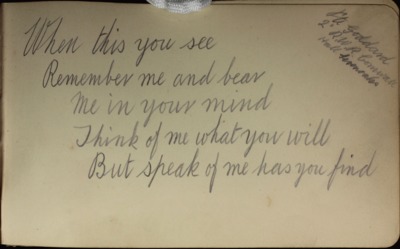 When this you see
Remember me and bear
Me in your mind
Think of me what you will
But speak of me has you find
Goddard
2